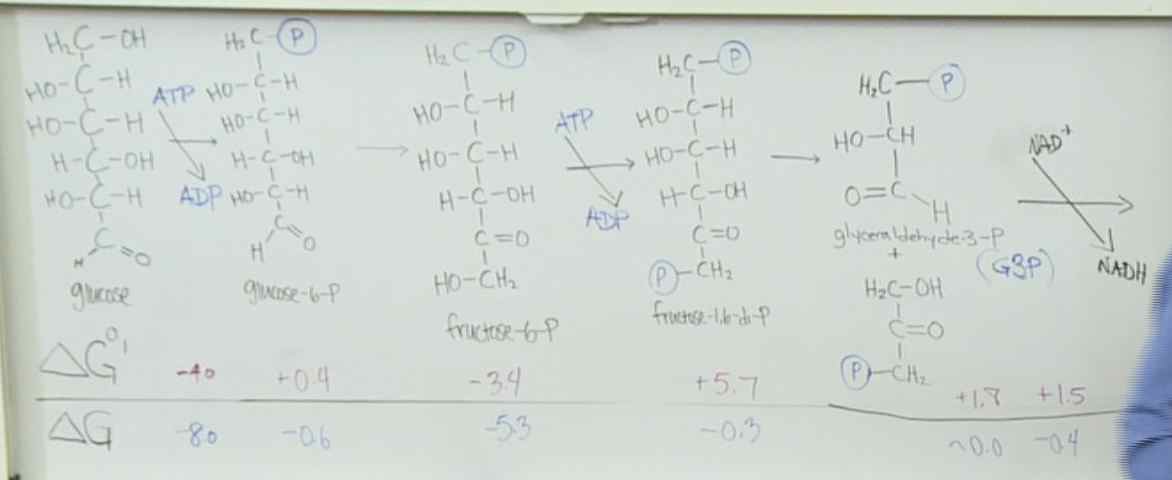 H₂C-OH
HO-C-H
HO-C-H
H-C-OH
HO-C-H
H C=O
glucose
ATP
ADP
H₂C-P
HO-C-H
HO-C-H
H-C-OH
HO-C-H
H C=O
glucose-6-P
H₂C-P
HO-C-H
HO-C-H
H-C-OH
C=O
HO-CH₂
fructose-6-P
ATP
ADP
H₂C-P
HO-C-H
HO-C-H
H-C-OH
C=O
P-CH₂
fructose-1,6-di-P
H₂C-P
HO-CH
O=C-H
glyceraldehyde-3-P
(G3P)
+
H₂C-OH
C=O
P-CH₂
NAD⁺
NADH
ΔG°' -4.0 +0.4 -3.4 +5.7 +1.8 +1.5
ΔG -8.0 -0.6 -5.3 -0.3 ~0.0 -0.4